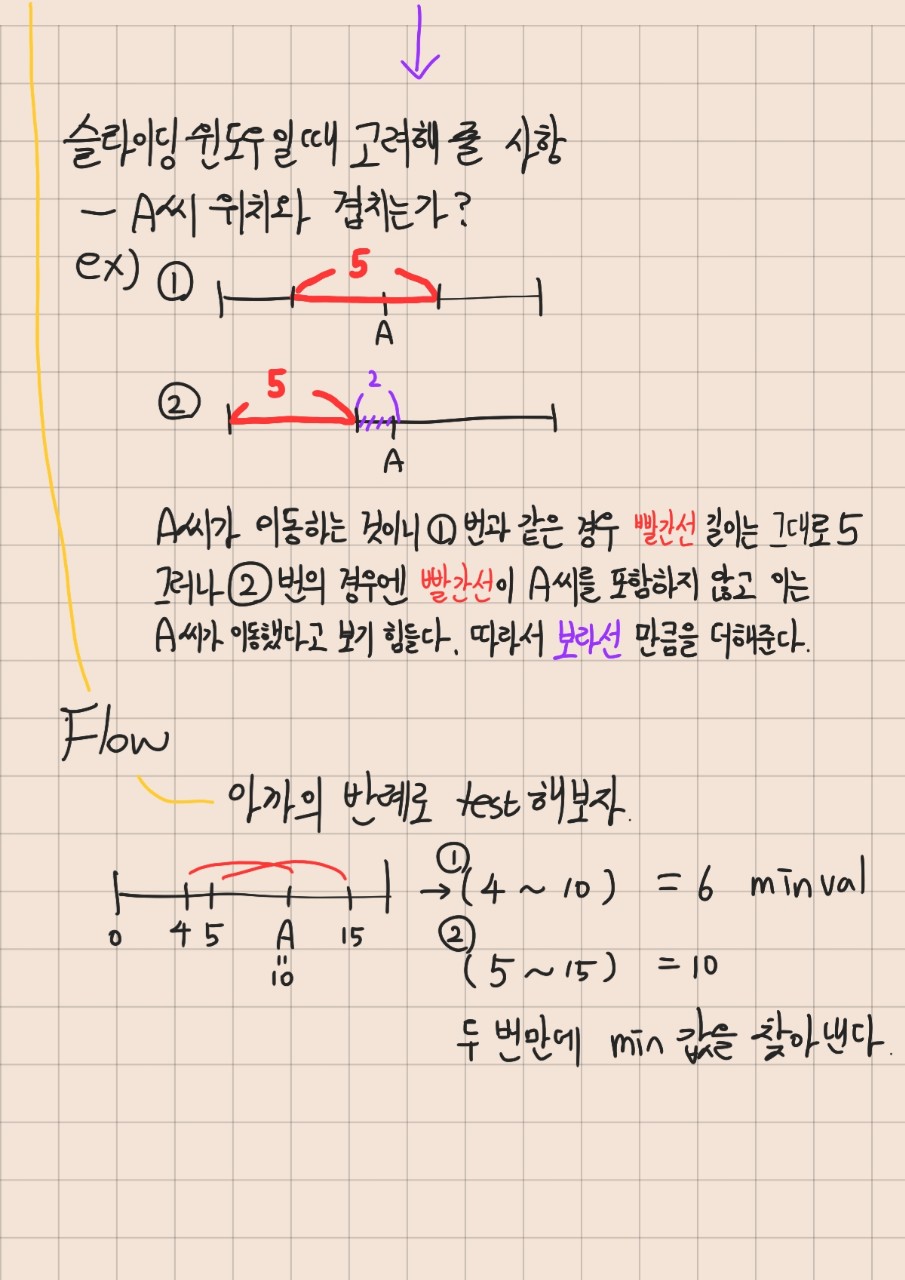 슬라이딩 윈도우일때 고려해 줄 사항
— A씨 위치와 겹치는가?
ex) ① 5
A
② 5 2
A
A씨가 이동하는 것이니 ①번과 같은 경우 빨간선 길이는 그대로 5
그러나 ②번의 경우엔 빨간선이 A씨를 포함하지 않고 이는
A씨가 이동했다고 보기 힘들다. 따라서 보라선 만큼을 더해준다.
Flow
아까의 반례로 test해보자.
0 4 5 A 15
=
10
① → (4 ~ 10) = 6 min val
② (5 ~ 15) = 10
두 번만에 min 값을 찾아낸다.